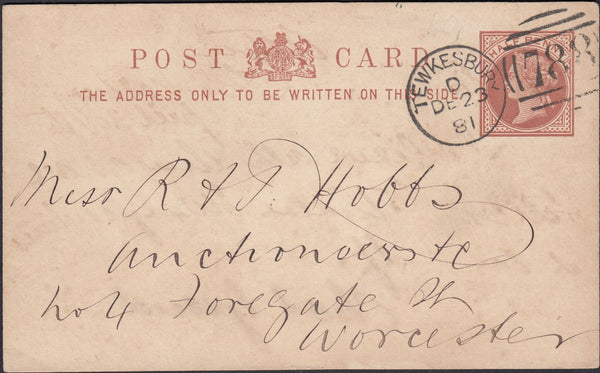 POST CARD
THE ADDRESS ONLY TO BE WRITTEN ON THIS SIDE
HALF PENNY
TEWKESBURY
D
DE 23
81
788
Messr R & J Hobbs
Auctioneers &c
No 4 Foregate St
Worcester